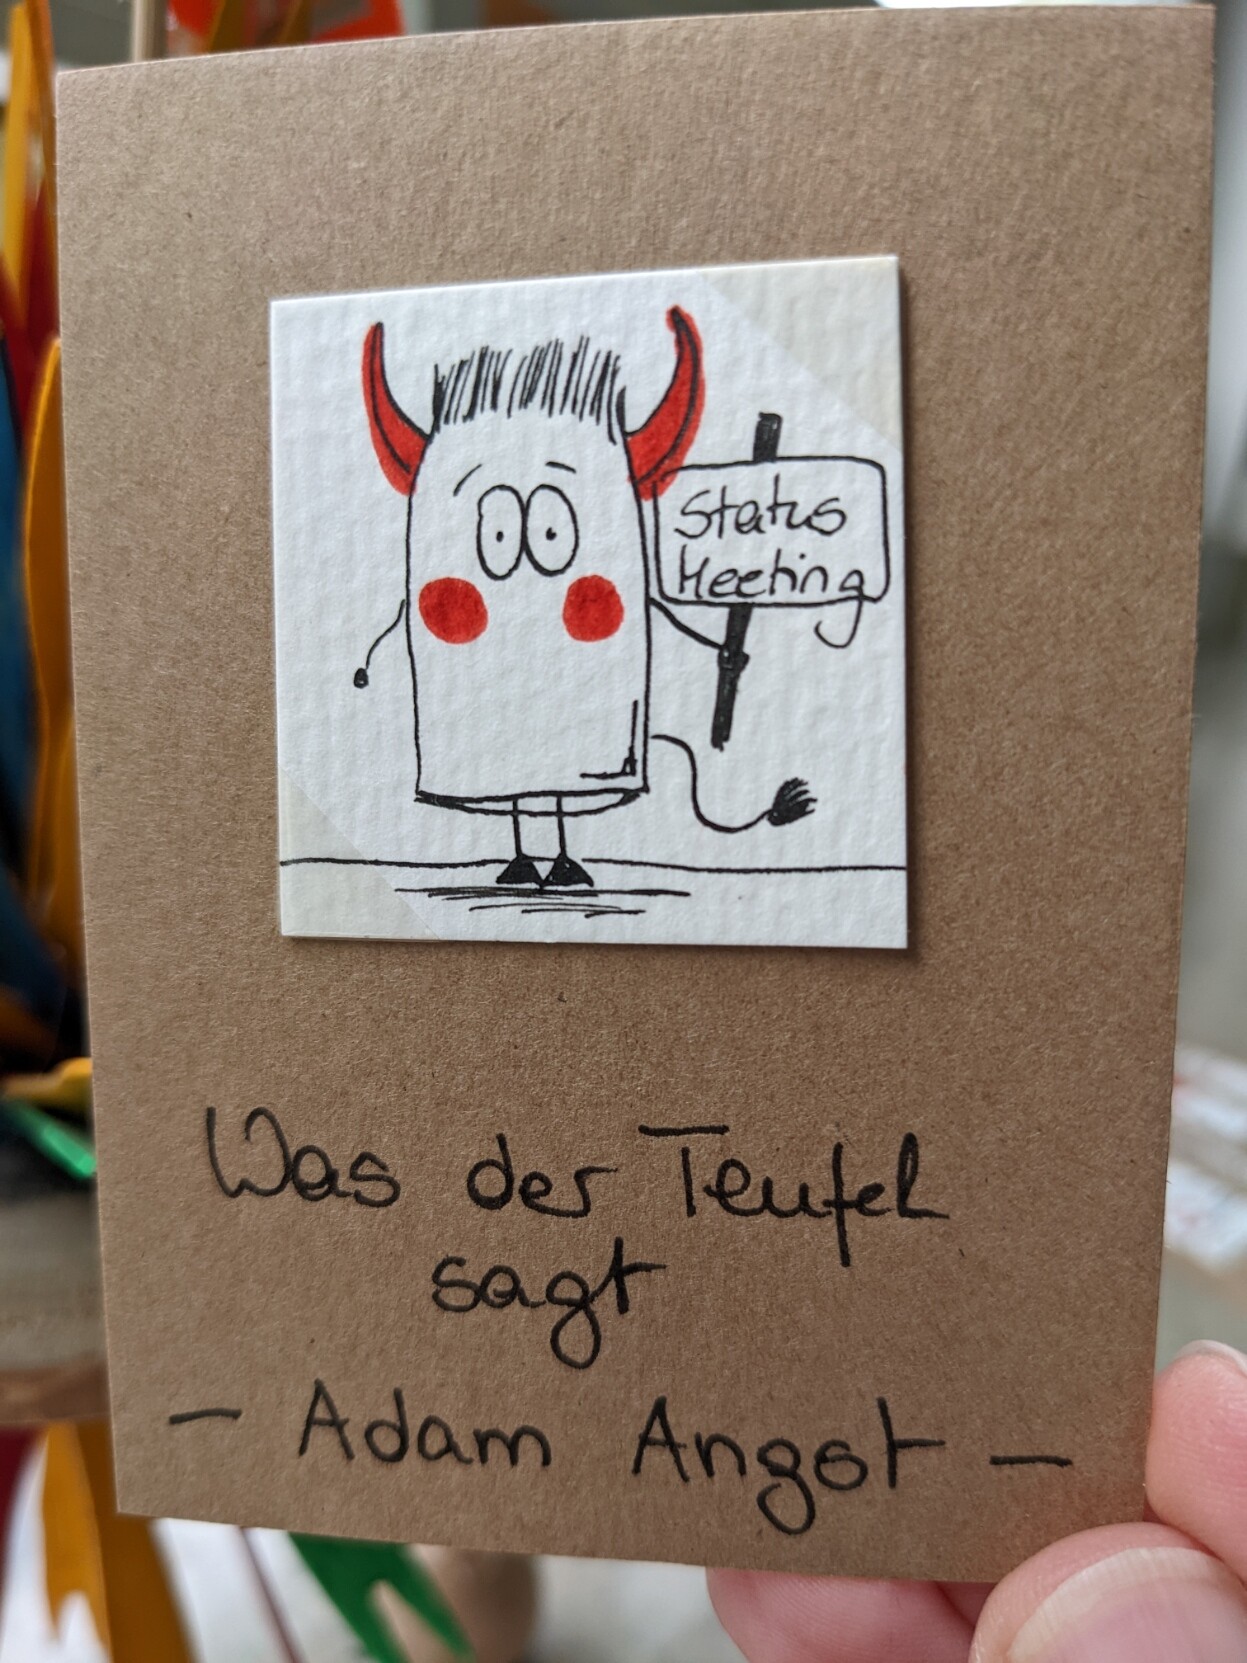 Status
Meeting
Was der Teufel
sagt
- Adam Angst -